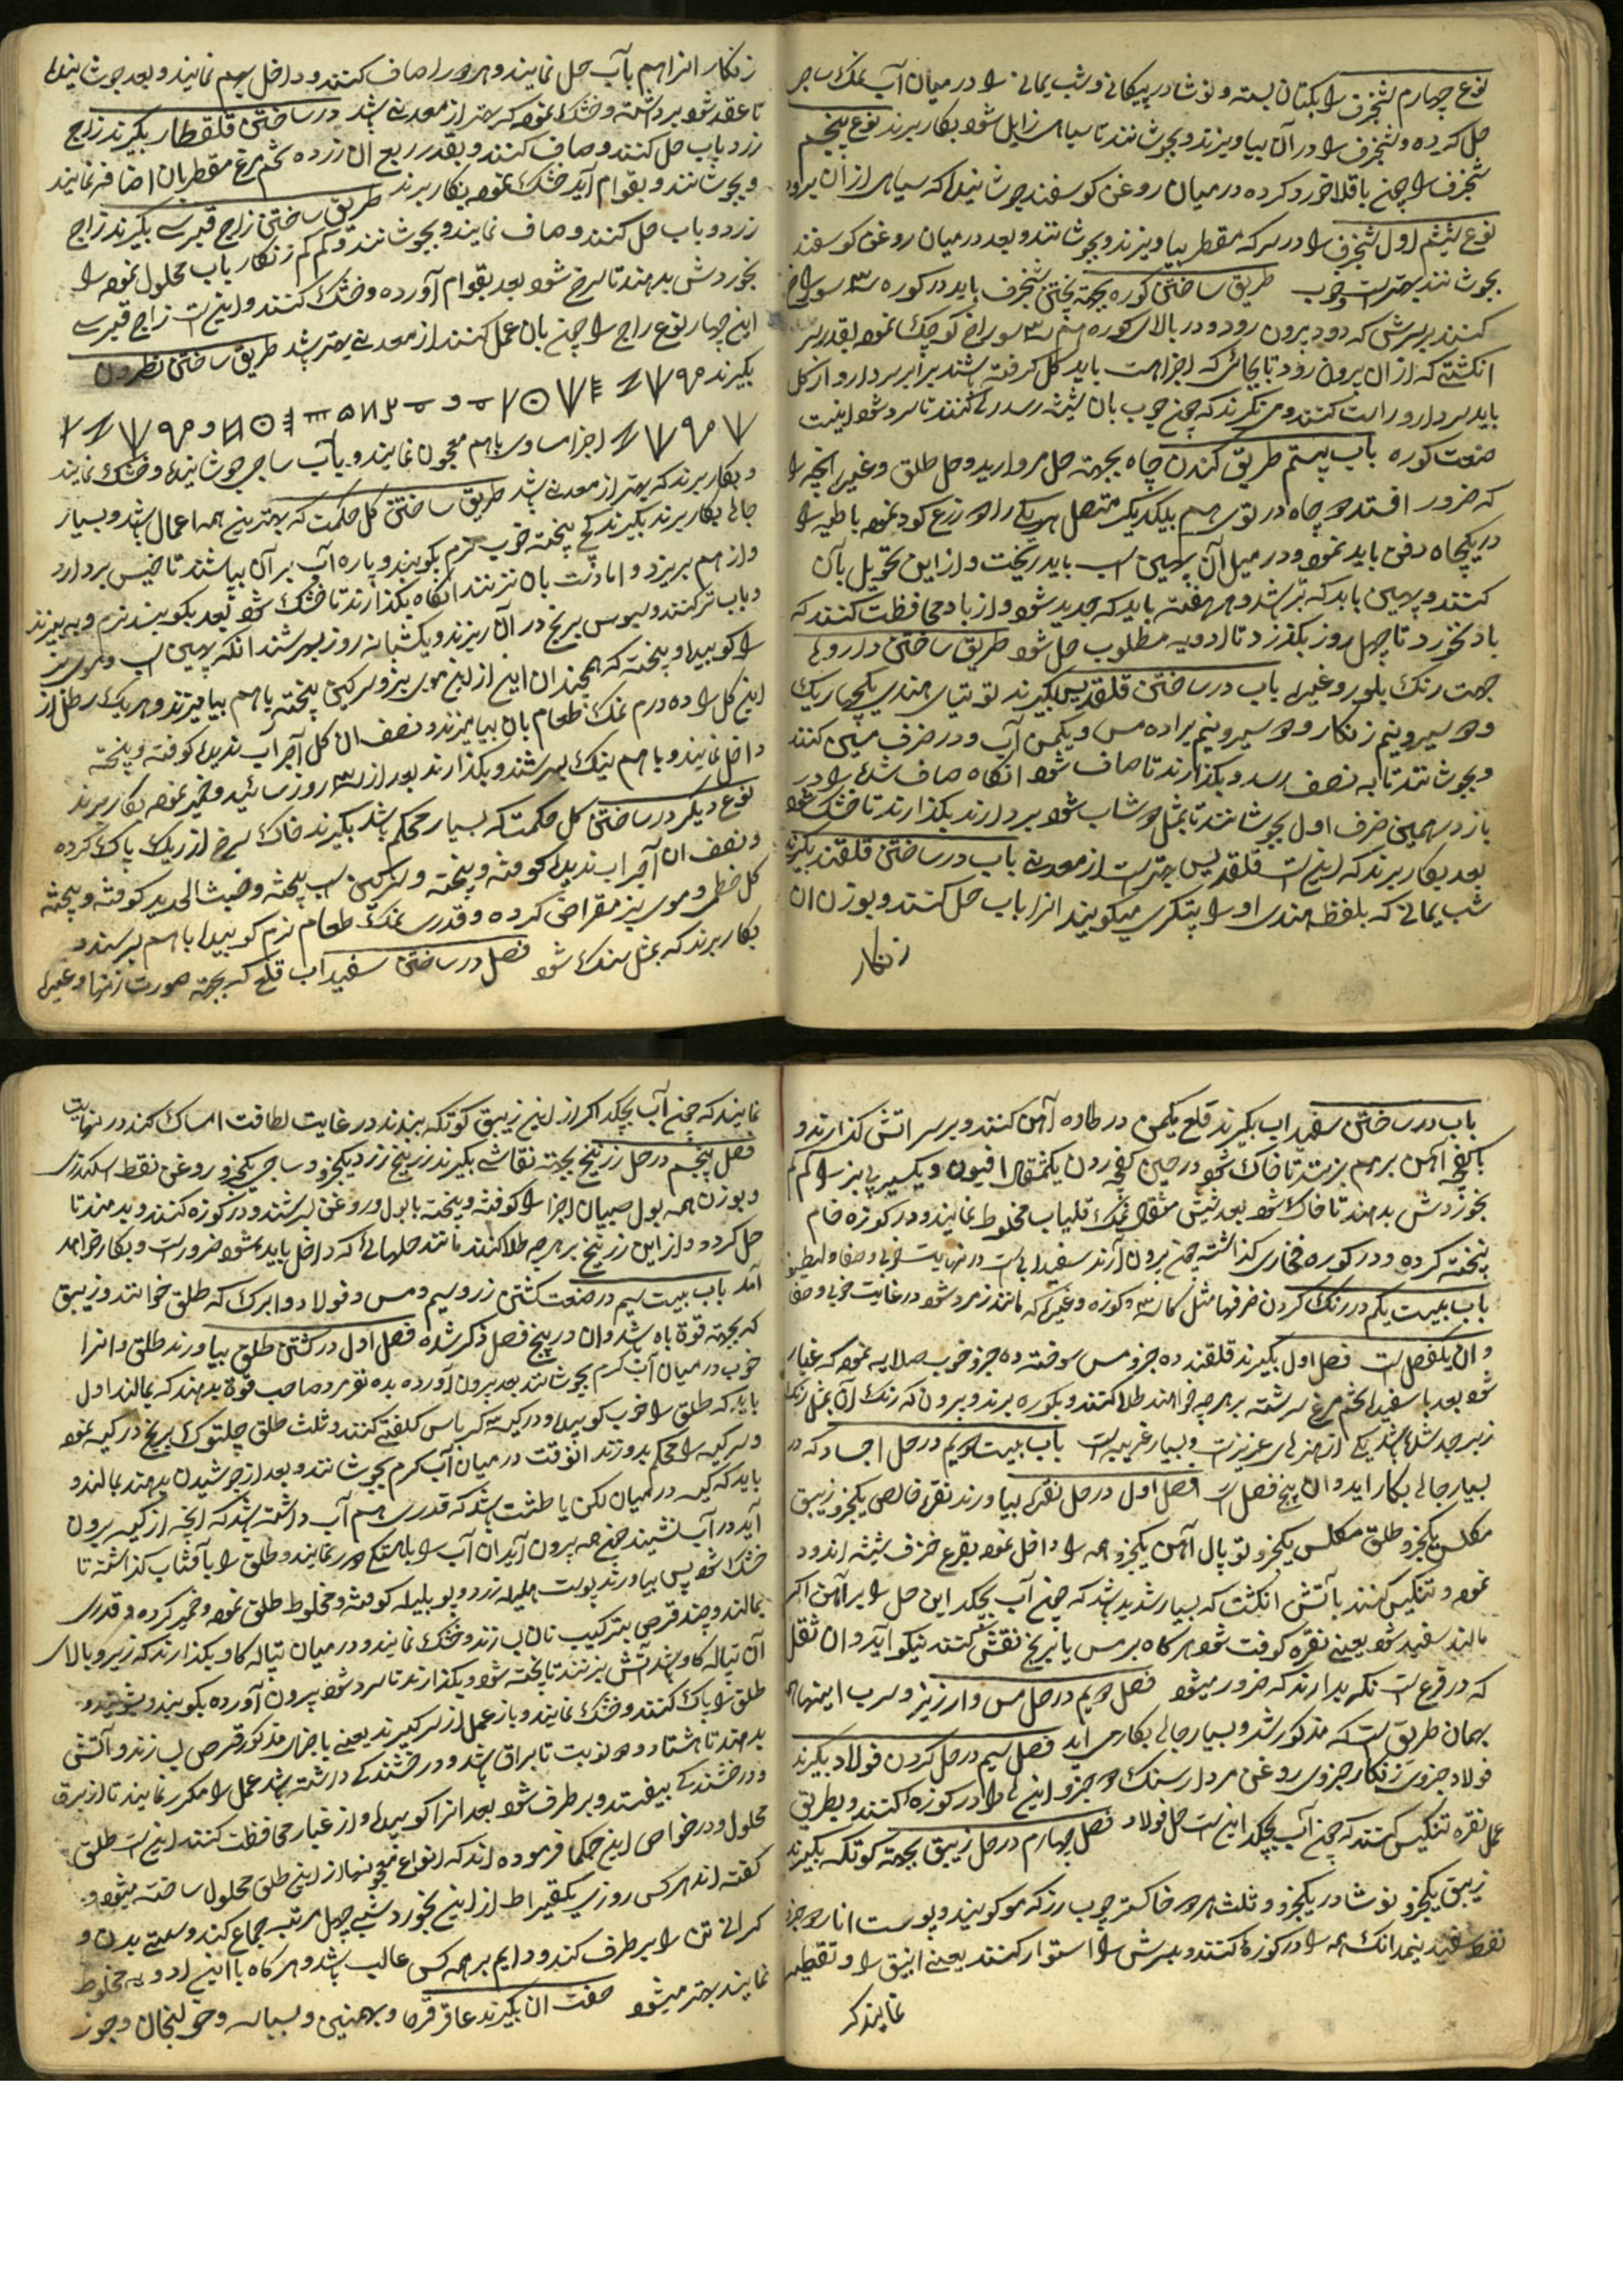 نوع چهارم شنجرف را بکتان بسته و نوشادر پیکانی و شب یمانی را در میان آب نمک ساجر
حل کرده و شنجرف را در آن بیاویزند و بجوشانند تا سیاهی زایل شود بکار برند نوع پنجم
شنجرف را چون باقلا خورد کرده در میان روغن کوسفند جوشانیده که سیاهی از آن برود
نوع ششم اول شنجرف را در سرکه مقطر بیاویزند و بجوشانند و بعد در میان روغن کوسفند
بجوشانند بهتر است و خوب طریق ساختن کوره بجهة پختن شنجرف باید در کوره سه سوراخ
کنند بر سرش که دود برون رود و در بالای کوره هم سه سوراخ کوچک نموده بقدر سر
انکشتی که از آن برون رود تا بجائی که اجزا هست باید کل کرفته باشند برابر سردارو از کل
باید سردارو راست کنند و می نکرند که چون چوب بان شیشه رسد رها کنند تا سرد شود اینست
صنعت کوره باب بیستم طریق کندن چاه بجهة حل مروارید و حل طلق و غیره آنچه را
که ضرور افتد دو چاه در توی هم بیکدیک متصل هر یکی را دو زرع کود نموده باطیه را
در یکچاه دفن باید نموده و در میل آن پهین اسب باید ریخت و از این تحویل بآن
کنند و پهین باید که تر باشد و هر هفته باید که جدید شود و از باد محافظت کنند که
باد نخورد تا چهل روز بکذرد تا ادویه مطلوب حل شود طریق ساختن داروها
جهت رنک بلور و غیره باب در ساختن قلقدیس بکیرند توتیای هندی یکچهاریک
و دو سیر و نیم زنکار و دو سیر و نیم براده مس و یکمن آب و در ظرف مسین کنند
و بجوشانند تا به نصف رسد و بکذارند تا صاف شود انکاه صاف شده را در
باز در همین ظرف اول بجوشانند تا بمثل دوشاب شود بردارند بکذارند تا خشک شود
بعد بکار برند که اینست قلقدیس بهتر است از معدنی باب در ساختن قلقند بکیرند
شب یمانی که بلفظ هندی او را پتکری میکویند انرا باب حل کنند و بوزن ان
زنکار
زنکار انرا هم بآب حل نمایند و هر دو را صاف کنند و داخل بهم نمایند و بعد جوشانیده
تا عقد شود برداشته و خشک نموده که بهتر از معدنی باشد در ساختن قلقطار بکیرند زاج
زرد باب حل کنند و صاف کنند و بقدر ربع ان زرده تخم مرغ مقطر بان اضافه نمایند
و بجوشانند و بقوام آید خشک نموده بکار برند طریق ساختن زاج قبرسی بکیرند زاج
زرد و باب حل کنند و صاف نمایند و بجوشانند و کم کم زنکار باب محلول نموده را
بخوردش بدهند تا سرخ شود بعد بقوام آورده و خشک کنند و اینست زاج قبرسی
این چهار نوع زاج را چون بان عمل کنند از معدنی بهتر باشد طریق ساختن نطرون
بکیرند
اجزا مساوی باهم معجون نمایند و بآب ساجر جوشانیده و خشک نمایند
و بکار برند که بهتر از معدنی باشد طریق ساختن کل حکمت که بهترین همه اعمال باشد و بسیار
جائی بکار برند بکیرند کچ پخته خوب نرم بکویند و پاره آب بر آن بپاشند تا خیس بردارد
و از هم بریزد و اما دست بان نزنند انکاه بکذارند تا خشک شود بعد بکویند نرم و به بیزند
و باب تر کنند و سبوس برنج در آن ریزند و یکشبانه روز بسرشند انکه پهین اسب و موی بز
را کوبیده و پخته که همچندان این از این موی بز و سرکین پخته باهم بیامیزند و هر یک رطل از
این کل را ده درم نمک طعام بان بیامیزند و نصف ان کل آجر آب ندیده کوفته و پخته
داخل نمایند و باهم نیک بسرشند و بکذارند بعد از سه روز سائیده و خمیر نموده بکار برند
نوع دیکر در ساختن کل حکمت که بسیار محکم باشد بکیرند خاک سرخ از ریک پاک کرده
و نصف ان آجر اب ندیده کوفته و پخته و سرکین اسب پخته و خبث الحدید کوفته و پخته
کل خطمی و موی بز مقراضی کرده و قدری نمک طعام نرم کوبیده باهم بسرشند و
بکار برند که بمثل سنک شود فصل در ساختن سفیداب قلع که بجهة صورت زنها و غیره
باب در ساختن سفیداب بکیرند قلع یکمن در طاوه آهن کنند و بر سر اتش کذارند و
با کفچه آهن بر هم بزنند تا خاک شود و در حین کفچه زدن یکمثقال افیون و یکسیر پی بز را کم کم
بخوردش بدهند تا خاک شود بعد شش مثقال نمک قلیاب مخلوط نمایند و در کوزه خام
پخته کرده و در کوره فخاری کذاشته چون برون آرند سفیدابی است در نهایت خوبی و صفا و لطیف
باب بیست یکم در رنک کردن ظرفها مثل کاسه و کوزه و غیره که مانند زمرد شود در غایت خوبی و صفا
و ان یکفصل است فصل اول بکیرند قلقند ده جزو مس سوخته ده جزو خوب صلایه نموده که غبار
شود بعد با سفیده تخم مرغ سرشته بر هر چه خواهند طلا کنند و بکوره برند و برون که رنک آن بمثل رنک
زبرجد شده باشد یکی از هنرهای عزیز است و بسیار غریب است باب بیست دویم در حل اجساد که در
بسیار جائی بکار اید و ان پنج فصل است فصل اول در حل نقره بیاورند نقره خالص یکجزو زیبق
مکلس یکجزو طلق مکلس یکجزو توبال آهن یکجزو همه را داخل نموده بقرع خزف شیشه اندود
نموده و تنکیس کنند بآتش انکشت که بسیار شدید باشد که چون آب بچکد این حل را بر آهن اکر
مالند سفید شود یعنی نقره کوفت شود هر کاه بر مس یا برنج نقش کنند نیکو آید و ان ثقل
که در قرع است نکه بدارند که ضرور میشود فصل دویم در حل مس و ارزیز و سرب اینها همه
بهمان طریق است که مذکور شد و بسیار جائی بکار می اید فصل سیم در حل کردن فولاد بکیرند
فولاد جزوی زنکار جزوی روغن مردارسنک دو جزو اینها را در کوزه کنند و بطریق
عمل نقره تنکیس کنند که چون آب بچکد اینست حل فولاد فصل چهارم در حل زیبق بجهة کوتکه بکیرند
زیبق یکجزو نوشادر یکجزو و ثلث هر دو خاکستر چوب رز که مو کویند و پوست انار دو جزو
نفط سفید بنمدانک همه را در کوزه کنند و سرش را استوار کنند یعنی انبیق را و تقطیر
نمایند کر
نمایند که چون آب بچکد اکر از این زیبق کوتکه ببندند در غایت لطافت امساک کند در نهایت
فصل پنجم در حل زرنیخ بجهة نقاشی بکیرند زرنیخ زرد یکجزو و ساجر یکجزو و روغن نفط اسکندری
و بوزن همه بول صبیان اجزا را کوفته و پخته با بول و روغن بسرشند و در کوزه کنند و بدهند تا
حل کردد و از این زرنیخ بر هر چه طلا کنند مانند حلهائی که داخل باید بشود ضرور است و بکار خواهد
آمد باب بیست سیم در صنعت کشتن زر و سیم و مس و فولاد و ابرک که طلق خوانند و زیبق
که بجهة قوة باه باشد و ان در پنج فصل ذکر شده فصل اول در کشتن طلق بیاورند طلق و انرا
خوب در میان آب کرم بجوشانند بعد برون آورده بده نفر مرد صاحب قوة بدهند که بمالند اول
باید که طلق را خوب کوبیده و در کیسه کرباس کلفتی کنند و ثلث طلق چلتوک برنج در کیسه نموده
و سر کیسه را محکم بدوزند انوقت در میان آب کرم بجوشانند و بعد از جوشیدن بدهند بمالند و
باید که کیسه در میان لکن یا طشت باشد که قدری هم آب داشته باشد که آنچه از کیسه برون
آید در آب نشیند چون همه برون آید ان آب را باهستکی دور نمایند و طلق را بآفتاب کذاشته تا
خشک شود پس بیاورند پوست هلیله زرد و بلیله کوفته و مخلوط طلق نموده و خمیر کرده و قدری
بمالند و چند قرص بترکیب نان بسازند و خشک نمایند و در میان تپاله کاو بکذارند که زیر و بالای
آن تپاله کاو باشد آتش بزنند تا پخته شود و بکذارند تا سرد شود برون آورده بکویند و بشویند و
طلق را پاک کنند و خشک نمایند و باز عمل از سر کیرند یعنی باجزای مذکور قرص بسازند و آتش
بدهند تا هشتاد و دو نوبت تا براق باشد و درخشندکی داشته باشد عمل را مکرر نمایند تا از برق
و درخشندکی بیفتند و برطرف شود بعد انرا کوبیده و از غبار محافظت کنند اینست طلق
محلول و در خواص این حکما فرموده اند که انواع معجونها از این طلق محلول ساخته میشود و
کفته اند هر کس روزی یکقیراط از این بخورد شبی چهل مرتبه جماع کند و سستی بدن و
کرانی تن را برطرف کند و دایم بر همه کس غالب باشد و هر کاه با این ادویه مخلوط
نمایند بهتر میشود صفت ان بکیرند عاقرقرحا و بهمنین و بسباسه و خولنجان و جوز